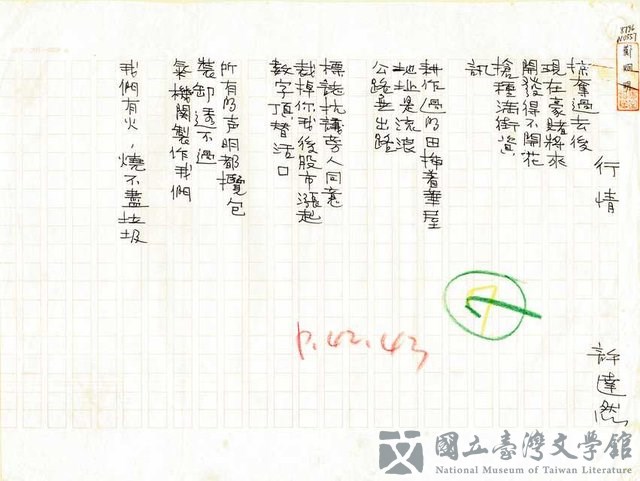 行情
許達然
掠奪過去後
現在豪賭將來
開發得不開花
搶種海衝資
訊
耕作過的田擁著華屋
地址是流浪
公路垂出路
標誌抗議旁人同意
裁掉你我後股市漲起
數字頂替活口
所有的声明都攬包
裝卸透不過
氣機関製作我們
我們有火，燒不盡垃圾
7
P.42.43
國立臺灣文學館
National Museum of Taiwan Literature